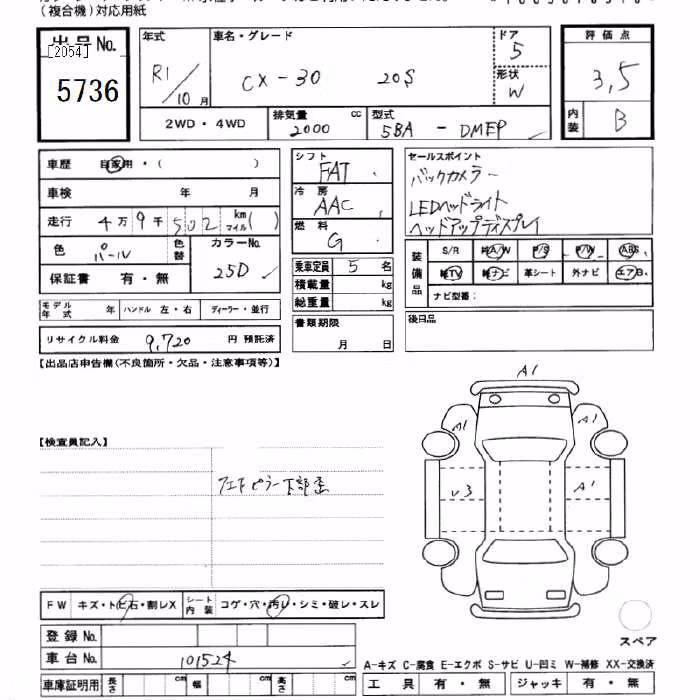 (複合機)対応用紙
出品No.
[2054]
5736
年式
R1/10月
車名・グレード
CX-30 20S
ドア
5
形状
W
評価点
3,5
内装
B
2WD・4WD
排気量
2000 cc
型式
5BA - DMEP
車歴 自家用・( )
車検 年 月
走行 4万9千502 km マイル( )
色 パール
色替
カラーNo.
25D
保証書 有・無
モデル年式 年 ハンドル 左・右 ディーラー・並行
リサイクル料金 9,720 円 預託済
シフト
FAT
冷房
AAC
燃料
G
乗車定員 5 名
積載量 kg
総重量 kg
書類期限
月 日
セールスポイント
バックカメラー
LEDヘッドライト
ヘッドアップディスプレイ
装備品
S/R 純A/W P/S P/W ABS
純TV 純ナビ 革シート 外ナビ エアB.
ナビ型番:
後日品
【出品店申告欄(不良箇所・欠品・注意事項等)】
【検査員記入】
下部歪
A1
A1
A1
U3
A1
FW キズ・トビ石・割レX
シート内装 コゲ・穴・汚レ・シミ・破レ・スレ
登録No.
車台No. 101524
車庫証明用 長さ cm 幅 cm 高さ cm
スペア
A-キズ C-腐食 E-エクボ S-サビ U-凹ミ W-補修 XX-交換済
工具 有・無 ジャッキ 有・無